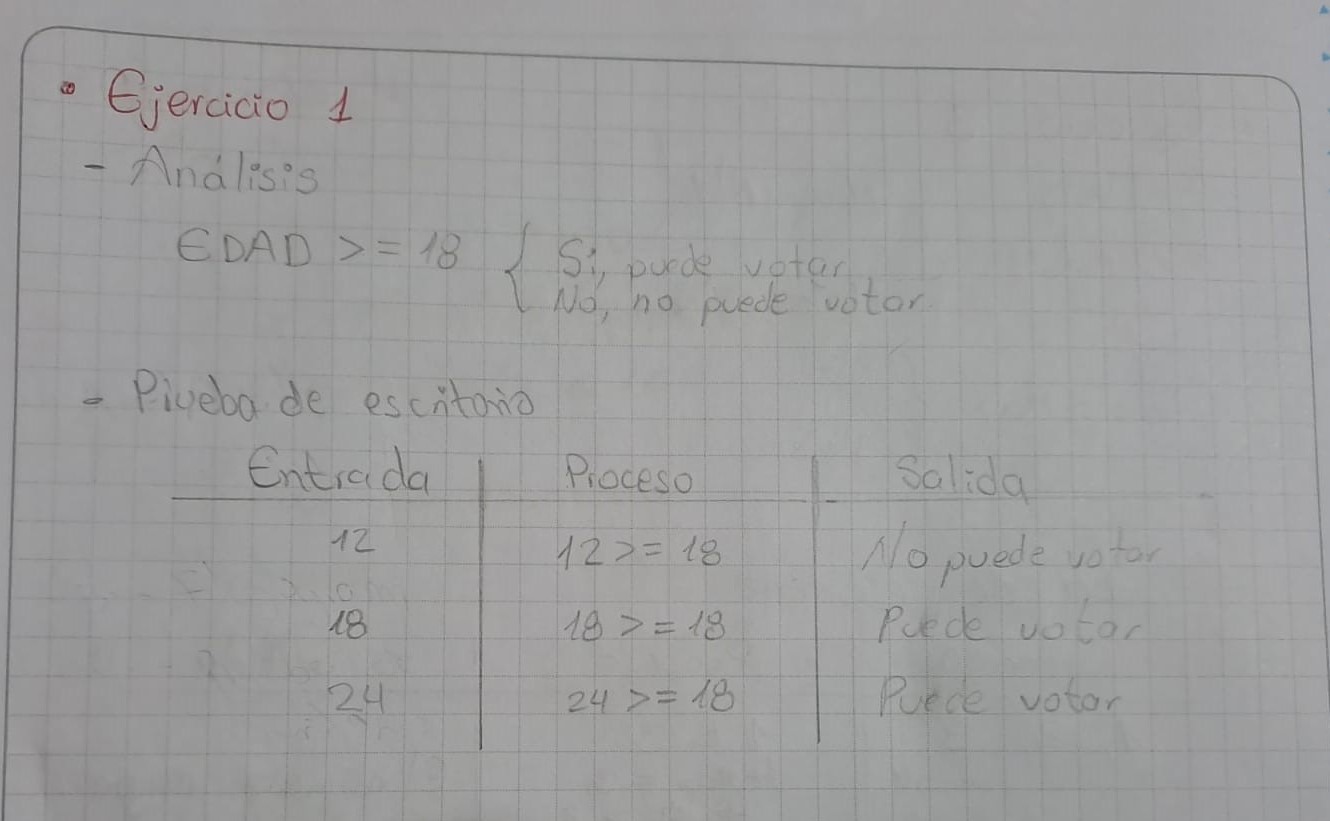 • Ejercicio 1
- Análisis
EDAD >= 18 { Si, puede votar
No, no puede votar.
- Prueba de escritorio
Entrada Proceso Salida
12 12 >= 18 No puede votar
18 18 >= 18 Puede votar
24 24 >= 18 Puede votar